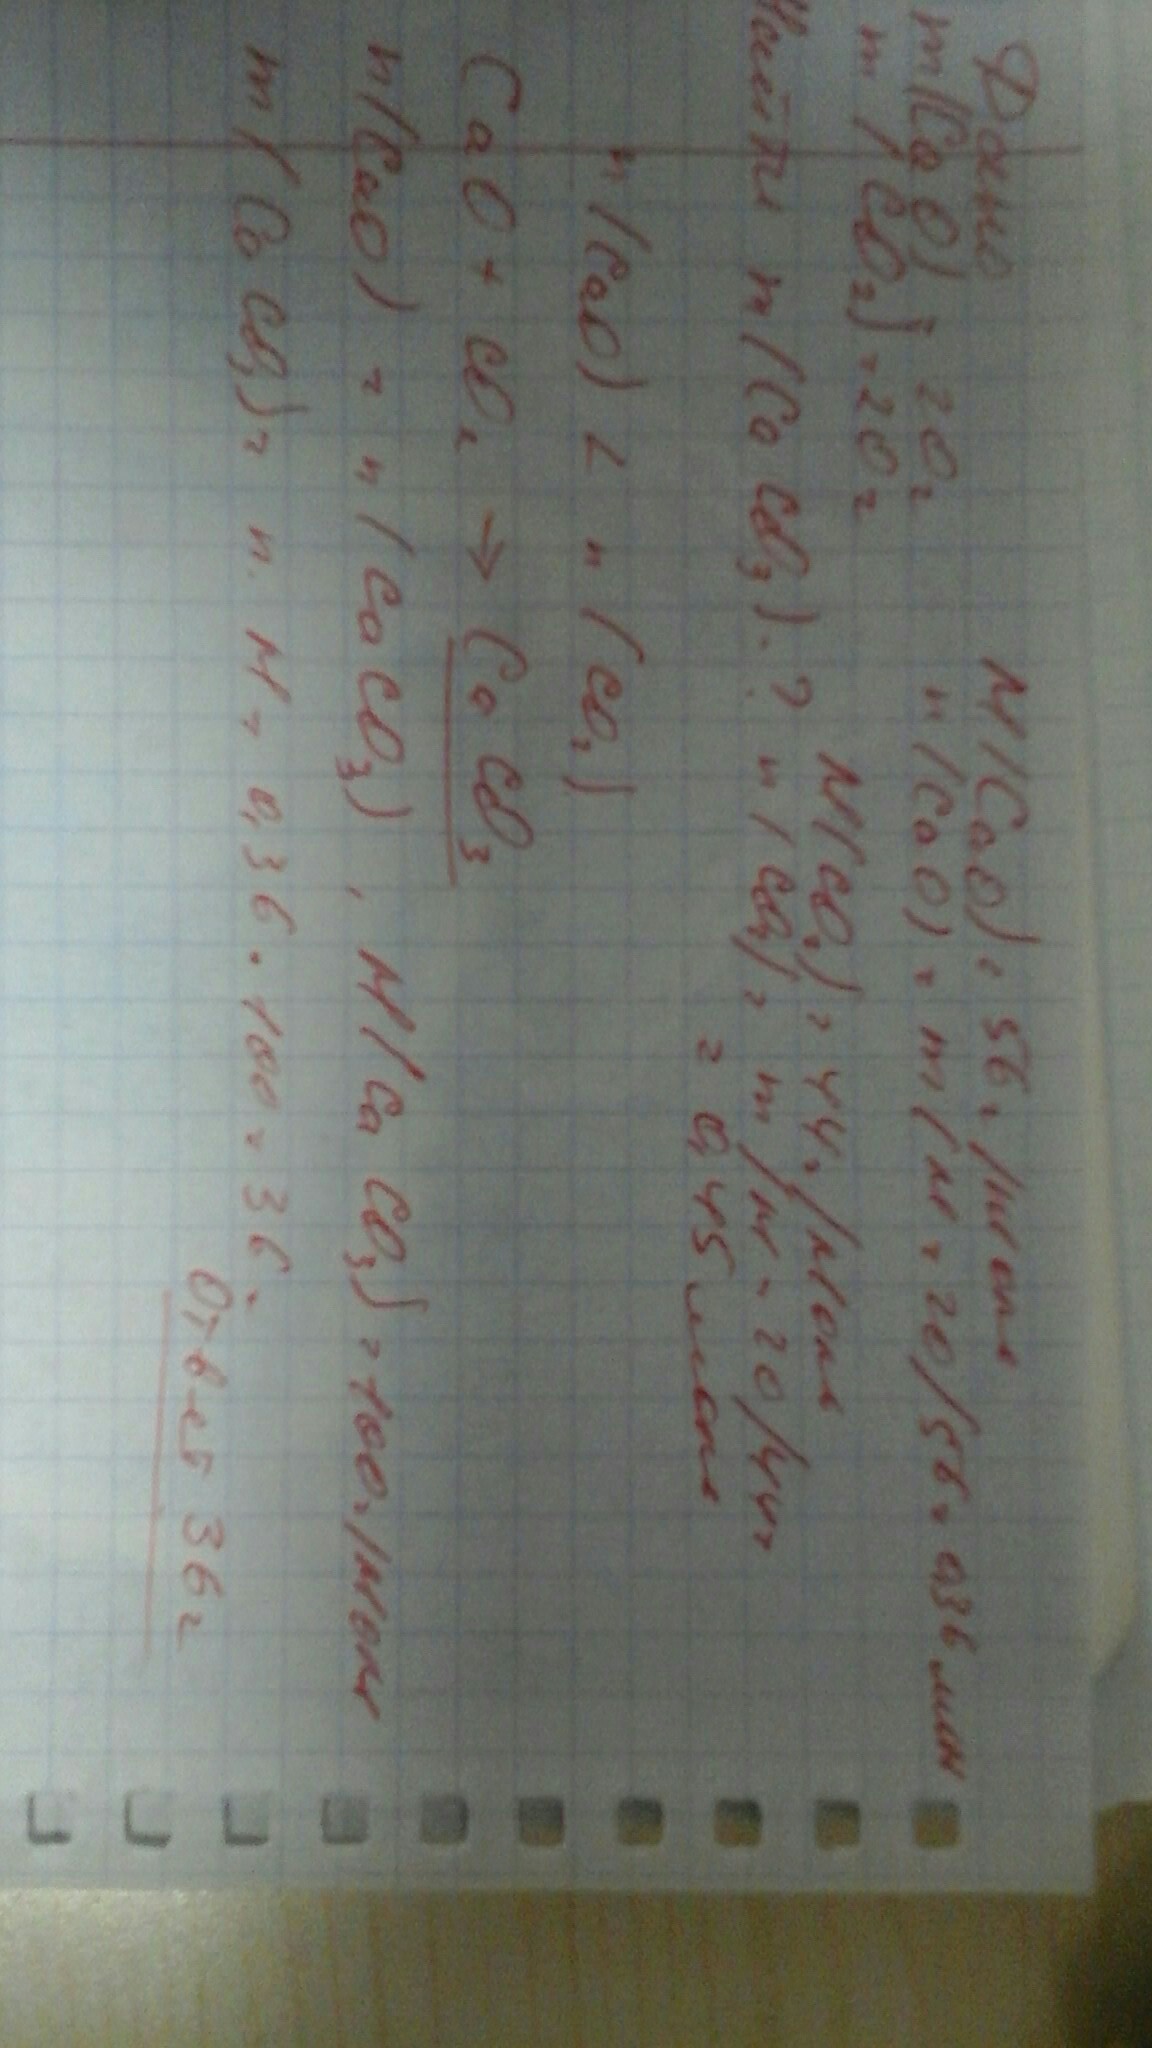 Дано
m(CaO) = 20г
m(CO₂) = 20г
Найти m(CaCO₃).?
M(CaO) = 56г/моль
n(CaO) = m/M = 20/56 = 0,36 моль
M(CO₂) = 44г/моль
n(CO₂) = m/M = 20/44 =
= 0,45 моль
n(CaO) < n(CO₂)
CaO + CO₂ → CaCO₃
n(CaO) = n(CaCO₃), M(CaCO₃) = 100г/моль
m(CaCO₃) = n · M = 0,36 · 100 = 36г
Ответ 36г